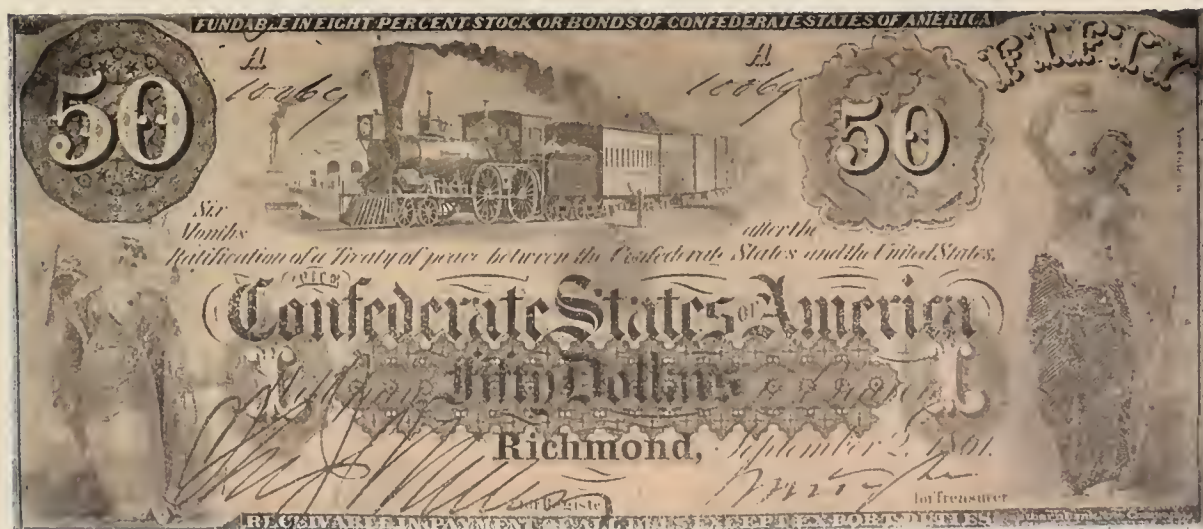 FUNDABLE IN EIGHT PER CENT STOCK OR BONDS OF CONFEDERATE STATES OF AMERICA
50
A
10069
A
10069
50
FIFTY
Six
Months
after the
Ratification of a Treaty of peace between the Confederate States and the United States.
Confederate States of America
Fifty Dollars
Richmond, September 2, 1861.
for Register
for Treasurer
RECEIVABLE IN PAYMENT OF ALL DUES EXCEPT EXPORT DUTIES